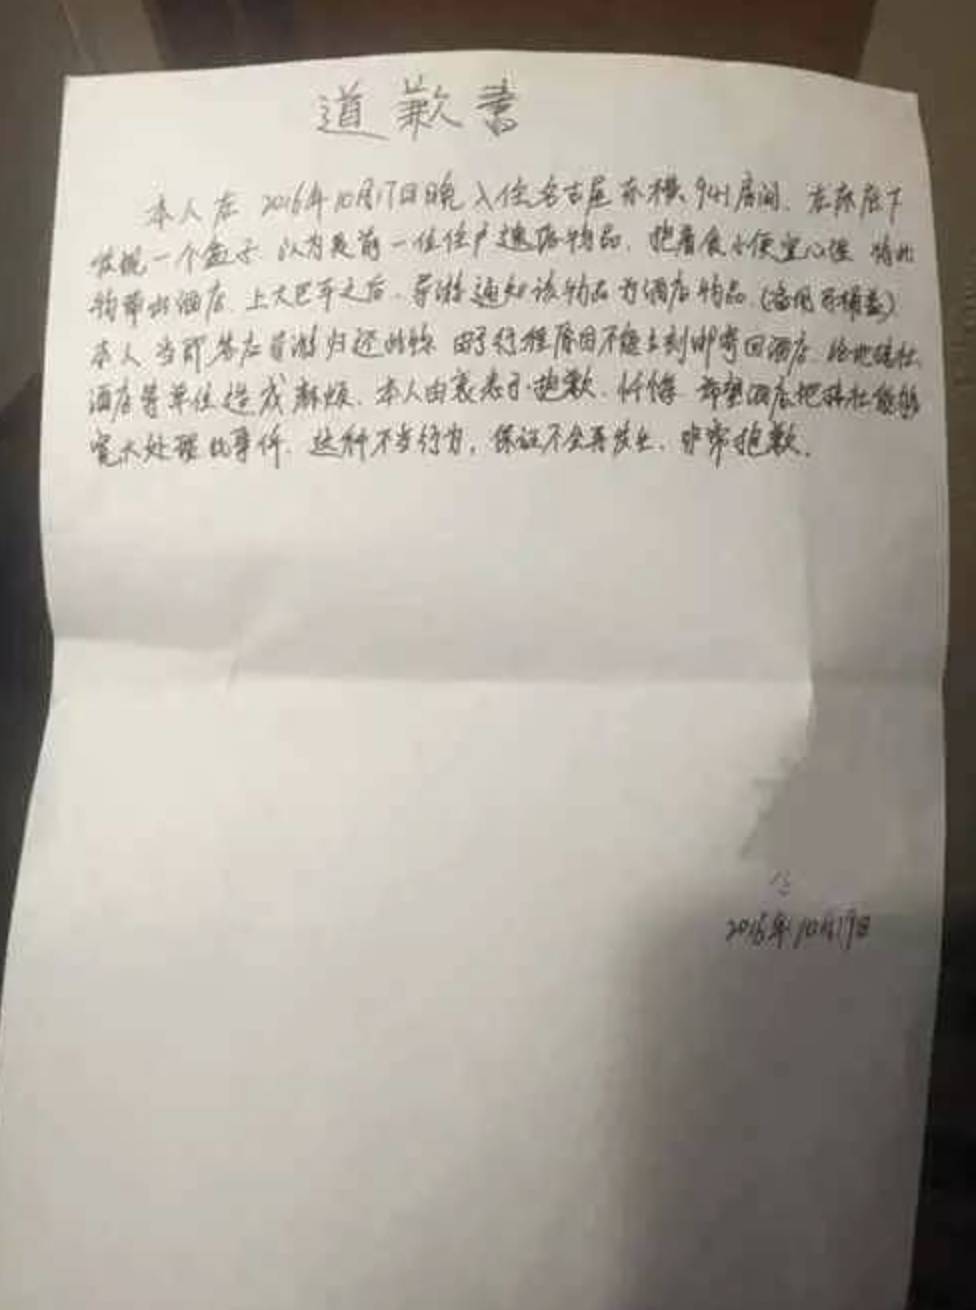 道歉書
本人在2016年10月17日晚入住名古屋东横941房间.在床底下
发现一个盒子以为是前一位住户遗落物品.抱着贪小便宜心理将此
物带出酒店.上大巴车之后.导游通知该物品为酒店物品(备用马桶盖)
本人当即答应导游归还此物由于行程原因不能立刻邮寄回酒店给地接社.
酒店等单位造成麻烦.本人由衷表示抱歉.忏悔希望酒店把接社能够
宽大处理此事件.这种不当行为,保证不会再发生.非常抱歉.
2016年10月19日